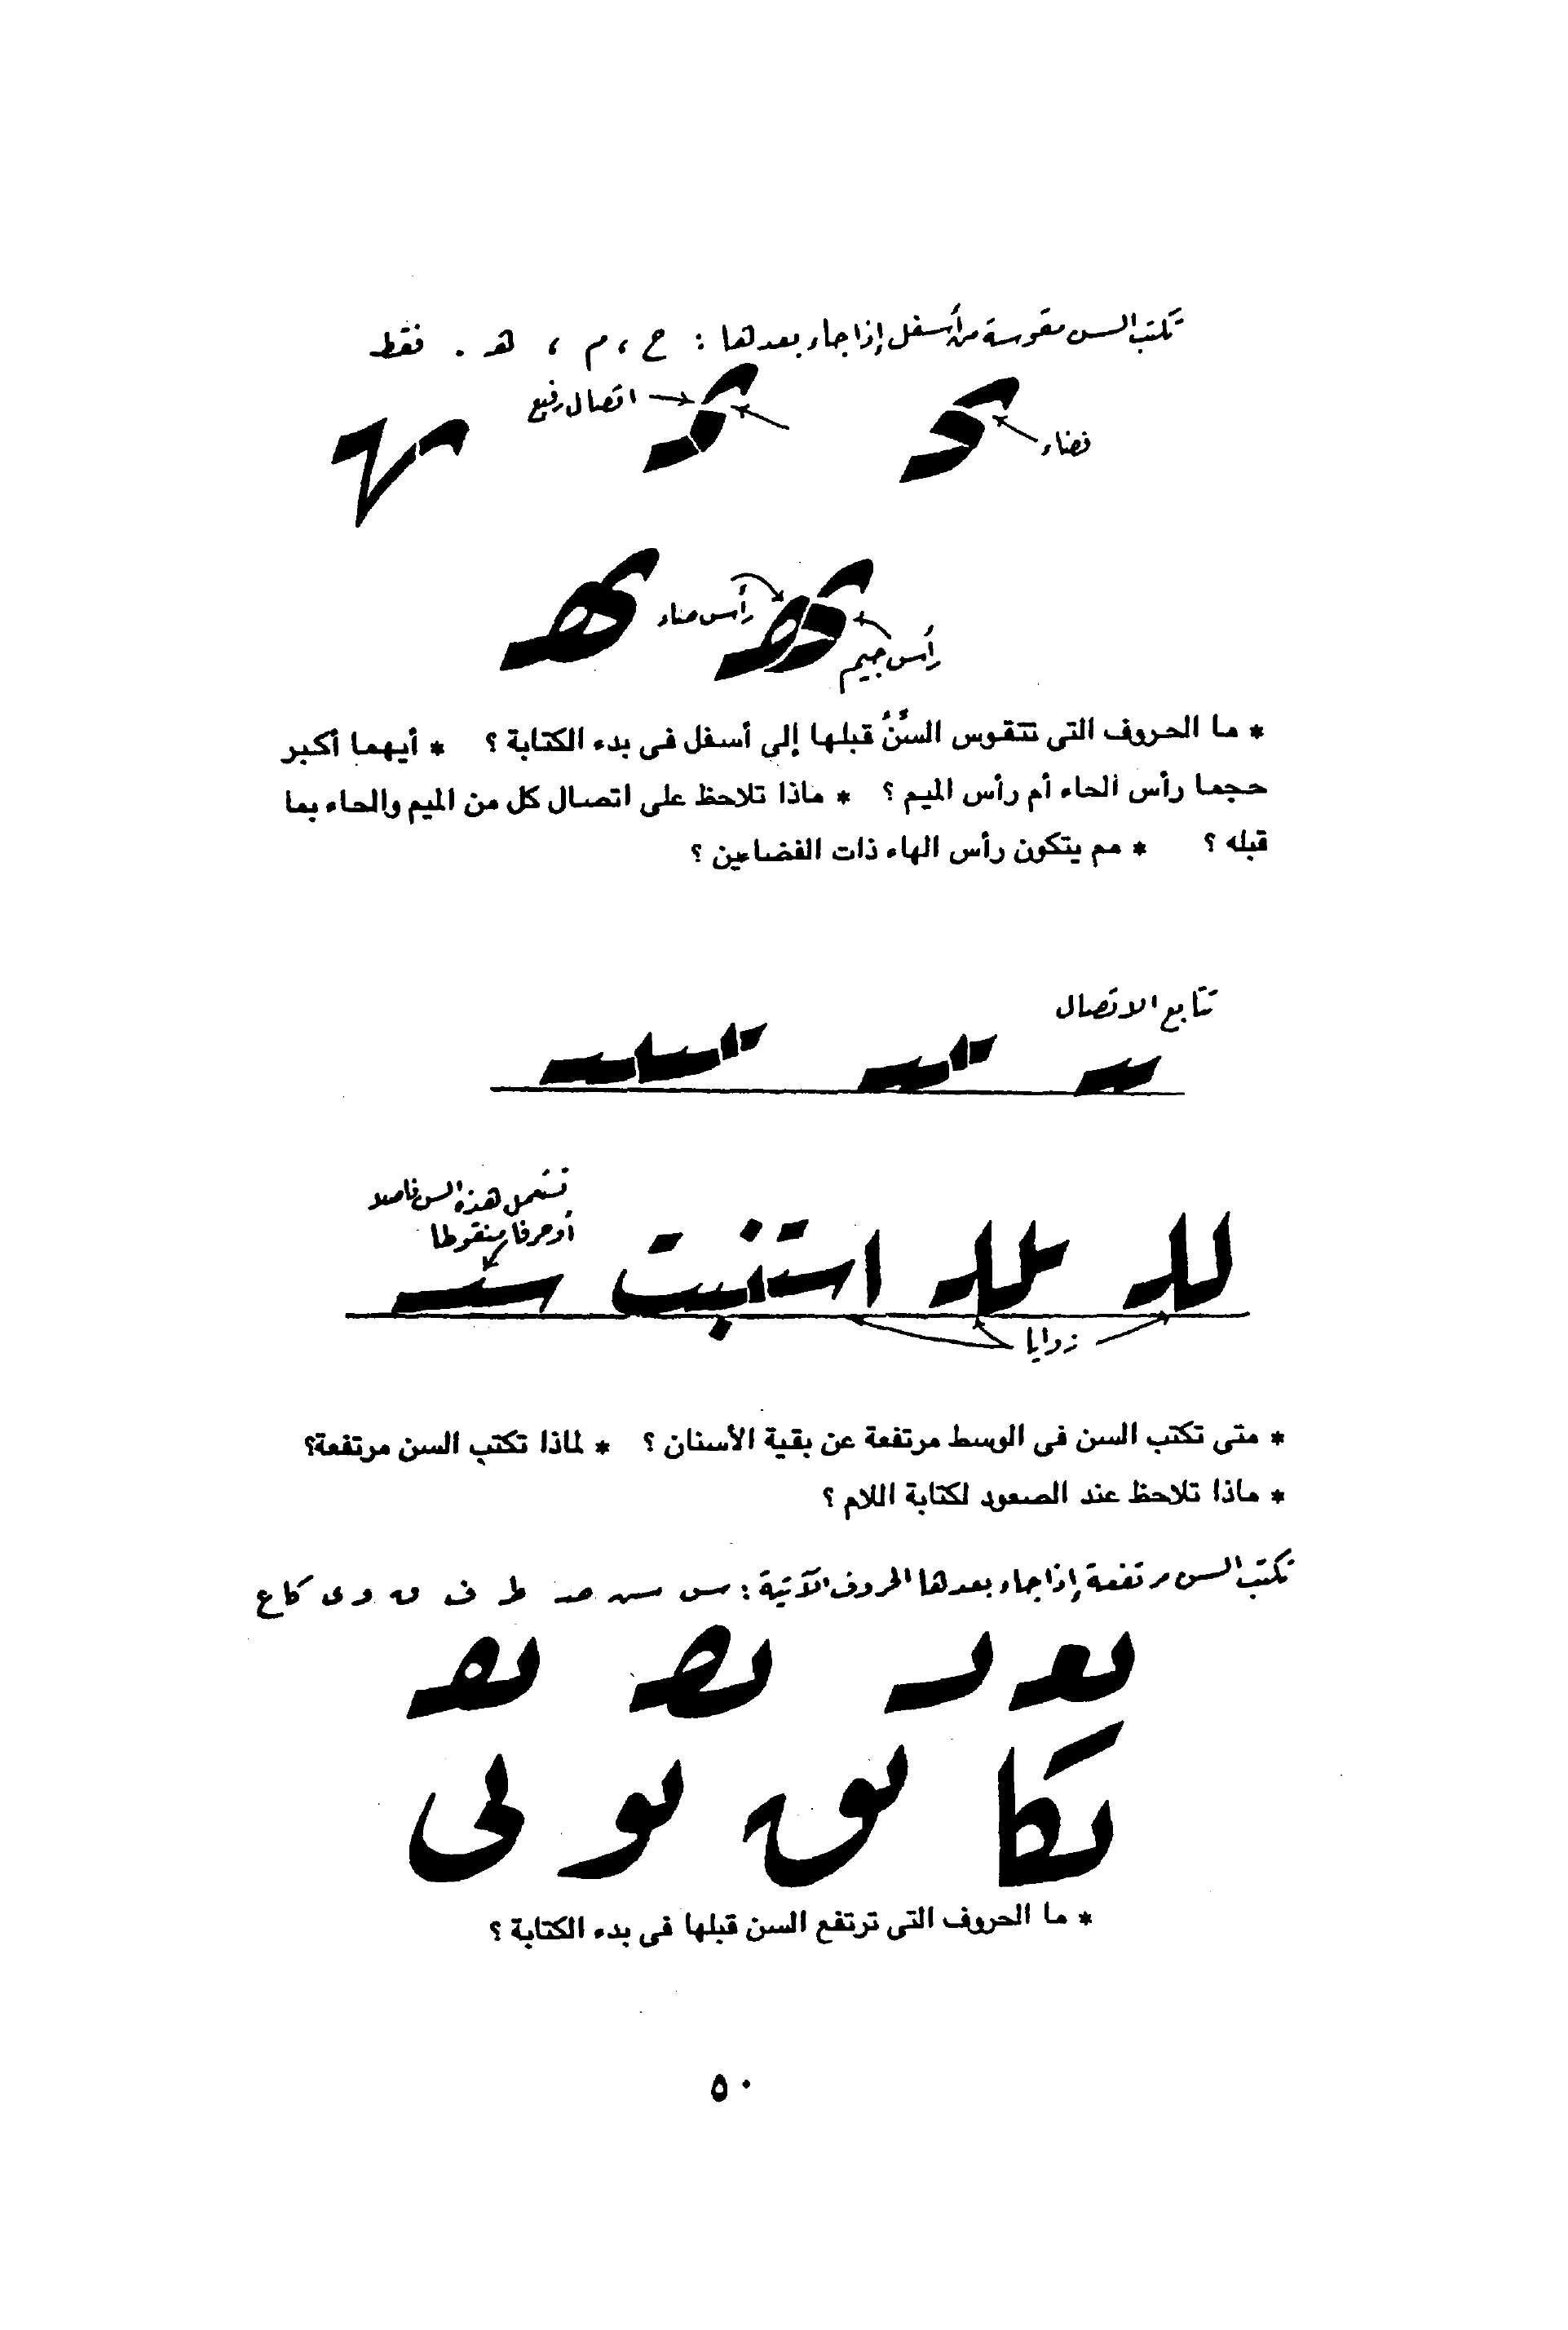 تكتب السن مقوسة من أسفل إذا جاء بعدها : ح ، م ، هـ . فقط
فضاء
اتصال رفيع
رأس صاد
رأس جيم
* ما الحروف التى تتقوس السِّنُ قبلها إلى أسفل فى بدء الكتابة ؟ * أيهما أكبر
حجما رأس الحاء أم رأس الميم ؟ * ماذا تلاحظ على اتصال كل من الميم والحاء بما
قبله ؟ * مم يتكون رأس الهاء ذات الفضاءين ؟
تتابع الاتصال
تستعمل هذه السن فاصلا
أو حرفا منقوطا
استنبت
زوايا
* متى تكتب السن فى الوسط مرتفعة عن بقية الأسنان ؟ * لماذا تكتب السن مرتفعة؟
* ماذا تلاحظ عند الصعود لكتابة اللام ؟
تكتب السن مرتفعة إذا جاء بعدها الحروف الآتية : س صد ط ف و ى كا ع
* ما الحروف التى ترتفع السن قبلها فى بدء الكتابة ؟
٥٠